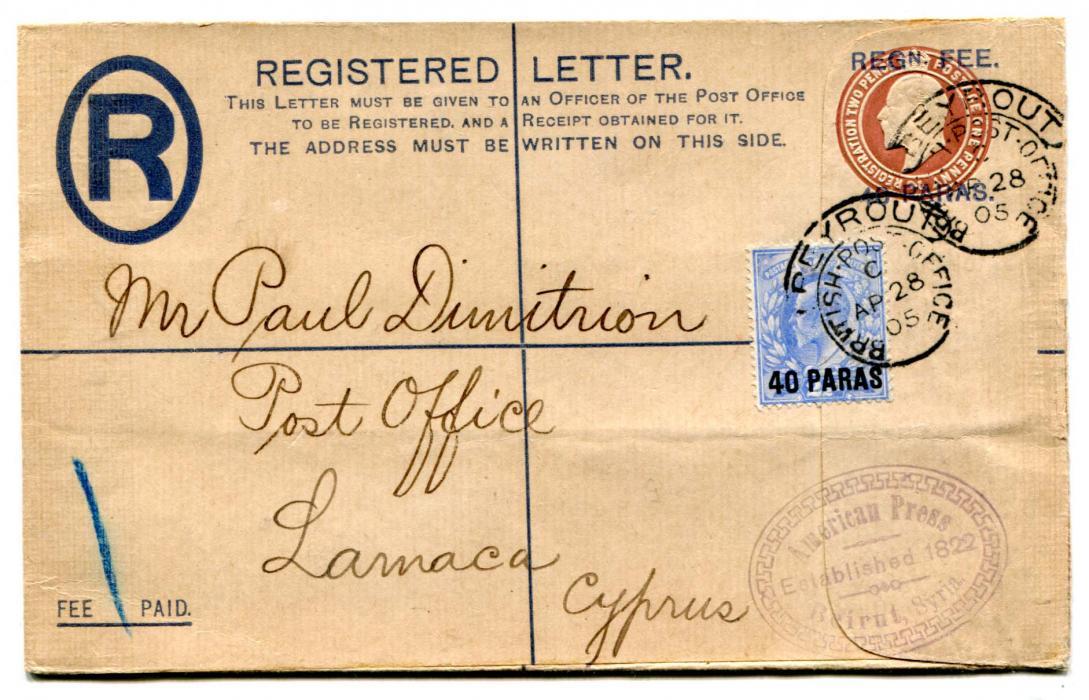 R
REGISTERED LETTER.
THIS LETTER MUST BE GIVEN TO AN OFFICER OF THE POST OFFICE
TO BE REGISTERED, AND A RECEIPT OBTAINED FOR IT.
THE ADDRESS MUST BE WRITTEN ON THIS SIDE.
REGN. FEE.
REGISTRATION TWO PENCE POSTAGE ONE PENNY
40 PARAS.
BEYROUT
BRITISH POST-OFFICE
AP 28
05
BEYROUT
BRITISH-POST-OFFICE
C
AP 28
05
40 PARAS
Mr Paul Dimitrion
Post Office
Larnaca
Cyprus
FEE PAID.
American Press
Established 1822
Beirut, Syria.